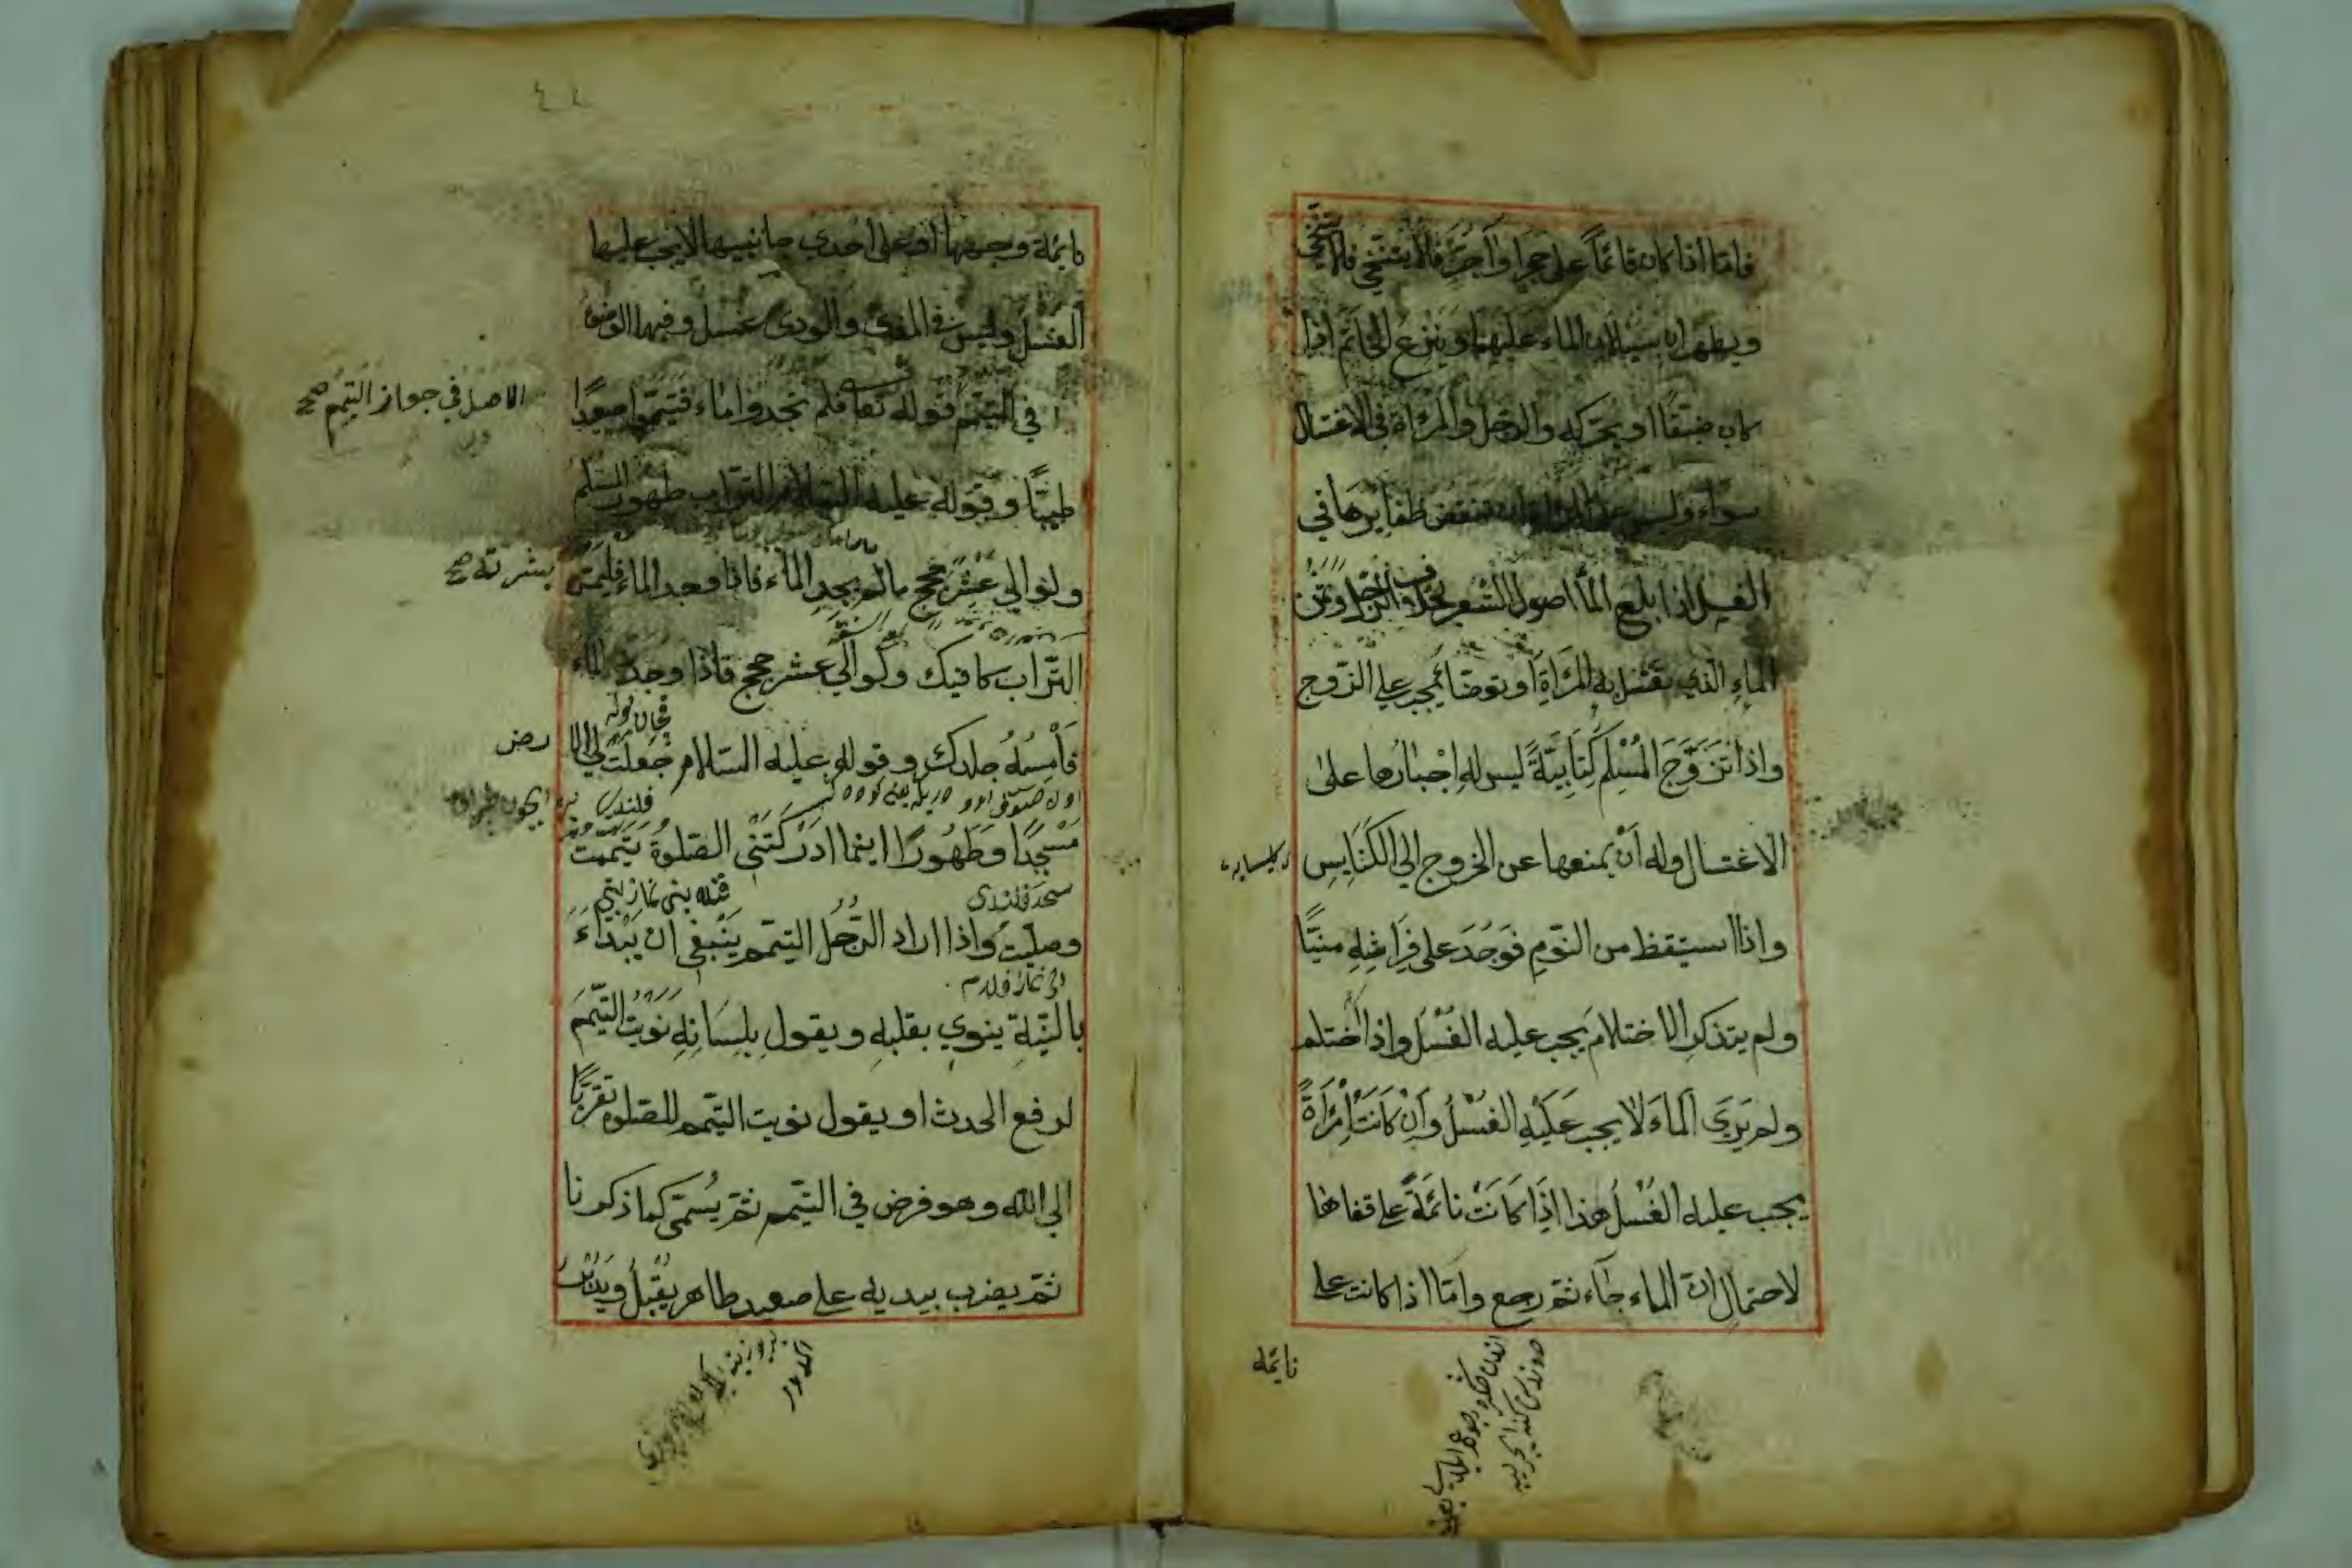 فاما اذا كان قائماً على حجر او آجر فلا يتنحى فلا يتنحى
ويطهران بسيلان الماء عليهما وينزع الخاتم اذا
كان ضيقا او يحركه والرجل والمرأة في الاغتسال
سواء وليس على المرأة ان تنقض ظفايرها في
الغسل اذا بلغ الماء اصول الشعر بخلاف الرجل وثمن
الماء الذي تغتسل به المرأة او توضأ يجب على الزوج
واذا تزوج المسلم كتابيّةً ليس له اجبارها على
الاغتسال وله أن يمنعها عن الخروج الى الكنايس
واذا استيقظ من النّوم فوجد على فراشه منيّا
ولم يتذكر الاختلام يجب عليه الغسل واذا اختلم
ولم يرى الماء لا يجب عليه الغسل وان كانت امرأة
يجب عليه الغسل هذا اذا كانت نائمة على قفاها
لاحتمال ان الماء جاء ثم رجع واما اذا كانت على
نائمة
٤٤
نائمة وجهها او على احدى جانبيها لا يجب عليها
الغسل وليس في المذى والودى غسل وفيهما الوضوء
الاصل في جواز التيمم صح
في التيمم قوله تعا فلم تجدوا ماء فتيمموا صعيدا
طيبًا وقوله عليه السلام التراب طهور المسلم
ولو الى عشر حجج مالم يجد الماء فاذا وجد الماء فليمس
بشرته صح
التراب كافيك ولو الى عشر حجج فاذا وجدت الماء
فأمسه جلدك وقوله عليه السلام جعلت لي الا
رض
مسجدًا وطهورًا اينما ادركتني الصلوة تيممت
وصليت واذا اراد الرجل التيمم ينبغي ان يبدأ
بالنّيّة ينوي بقلبه ويقول بلسانه نويت التيمم
لرفع الحدث او يقول نويت التيمم للصلوة تقربًا
الى الله وهو فرض في التيمم ثم يسمّى كما ذكرنا
ثم يضرب بيديه على صعيد طاهر يقبل ويدبر